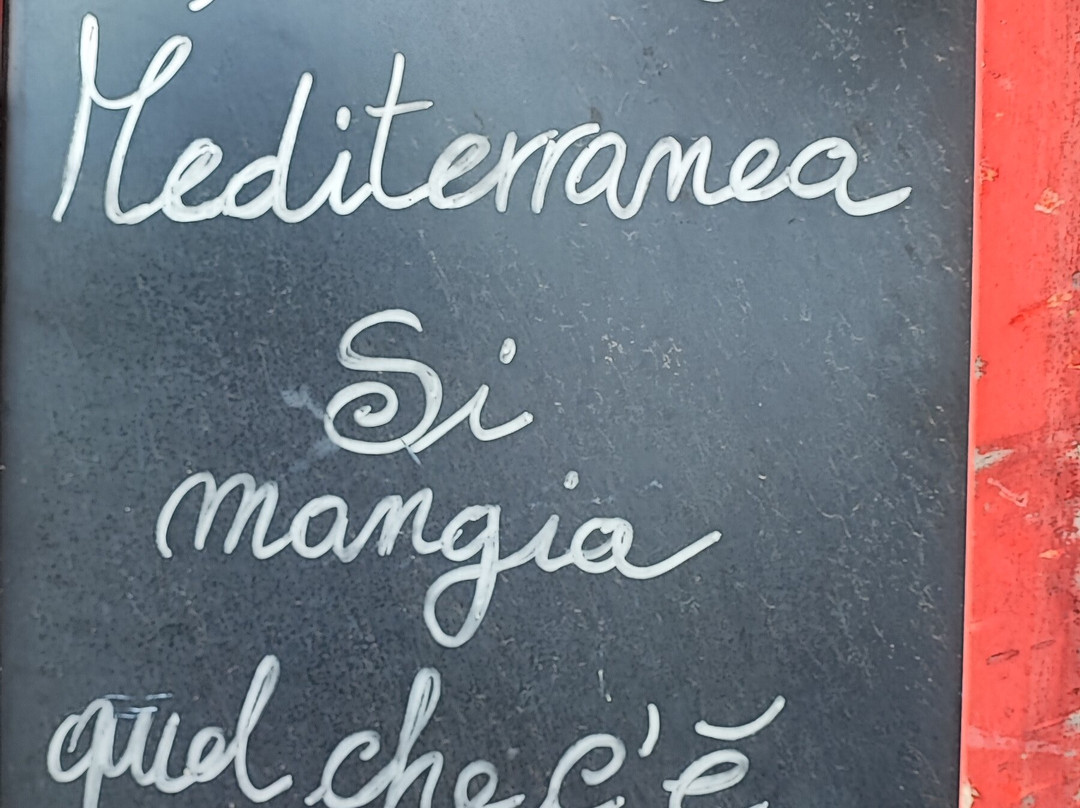 Mediterranea
Si
mangia
quel che c'è